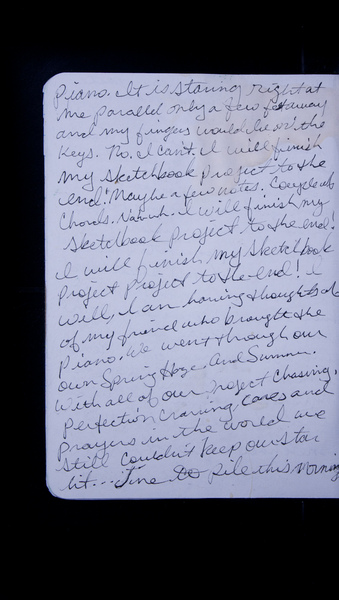 Piano. It is staring right at
me parallel only a few feet away
and my fingers would be on the
Keys. No. I can't. I will finish
my sketchbook project to the
end! Maybe a few notes. Couple
Chords. I will finish my
sketchbook project to the end!
I will finish my sketchbook
project project to the end! I
will, I am having thoughts
of my friend who brought the
Piano. We went through our
own Spring Haze. And Summer.
With all of our project chasing,
perfection craving, cares and
prayers in the world we
still couldn't keep our star
lit... Time to file this morning